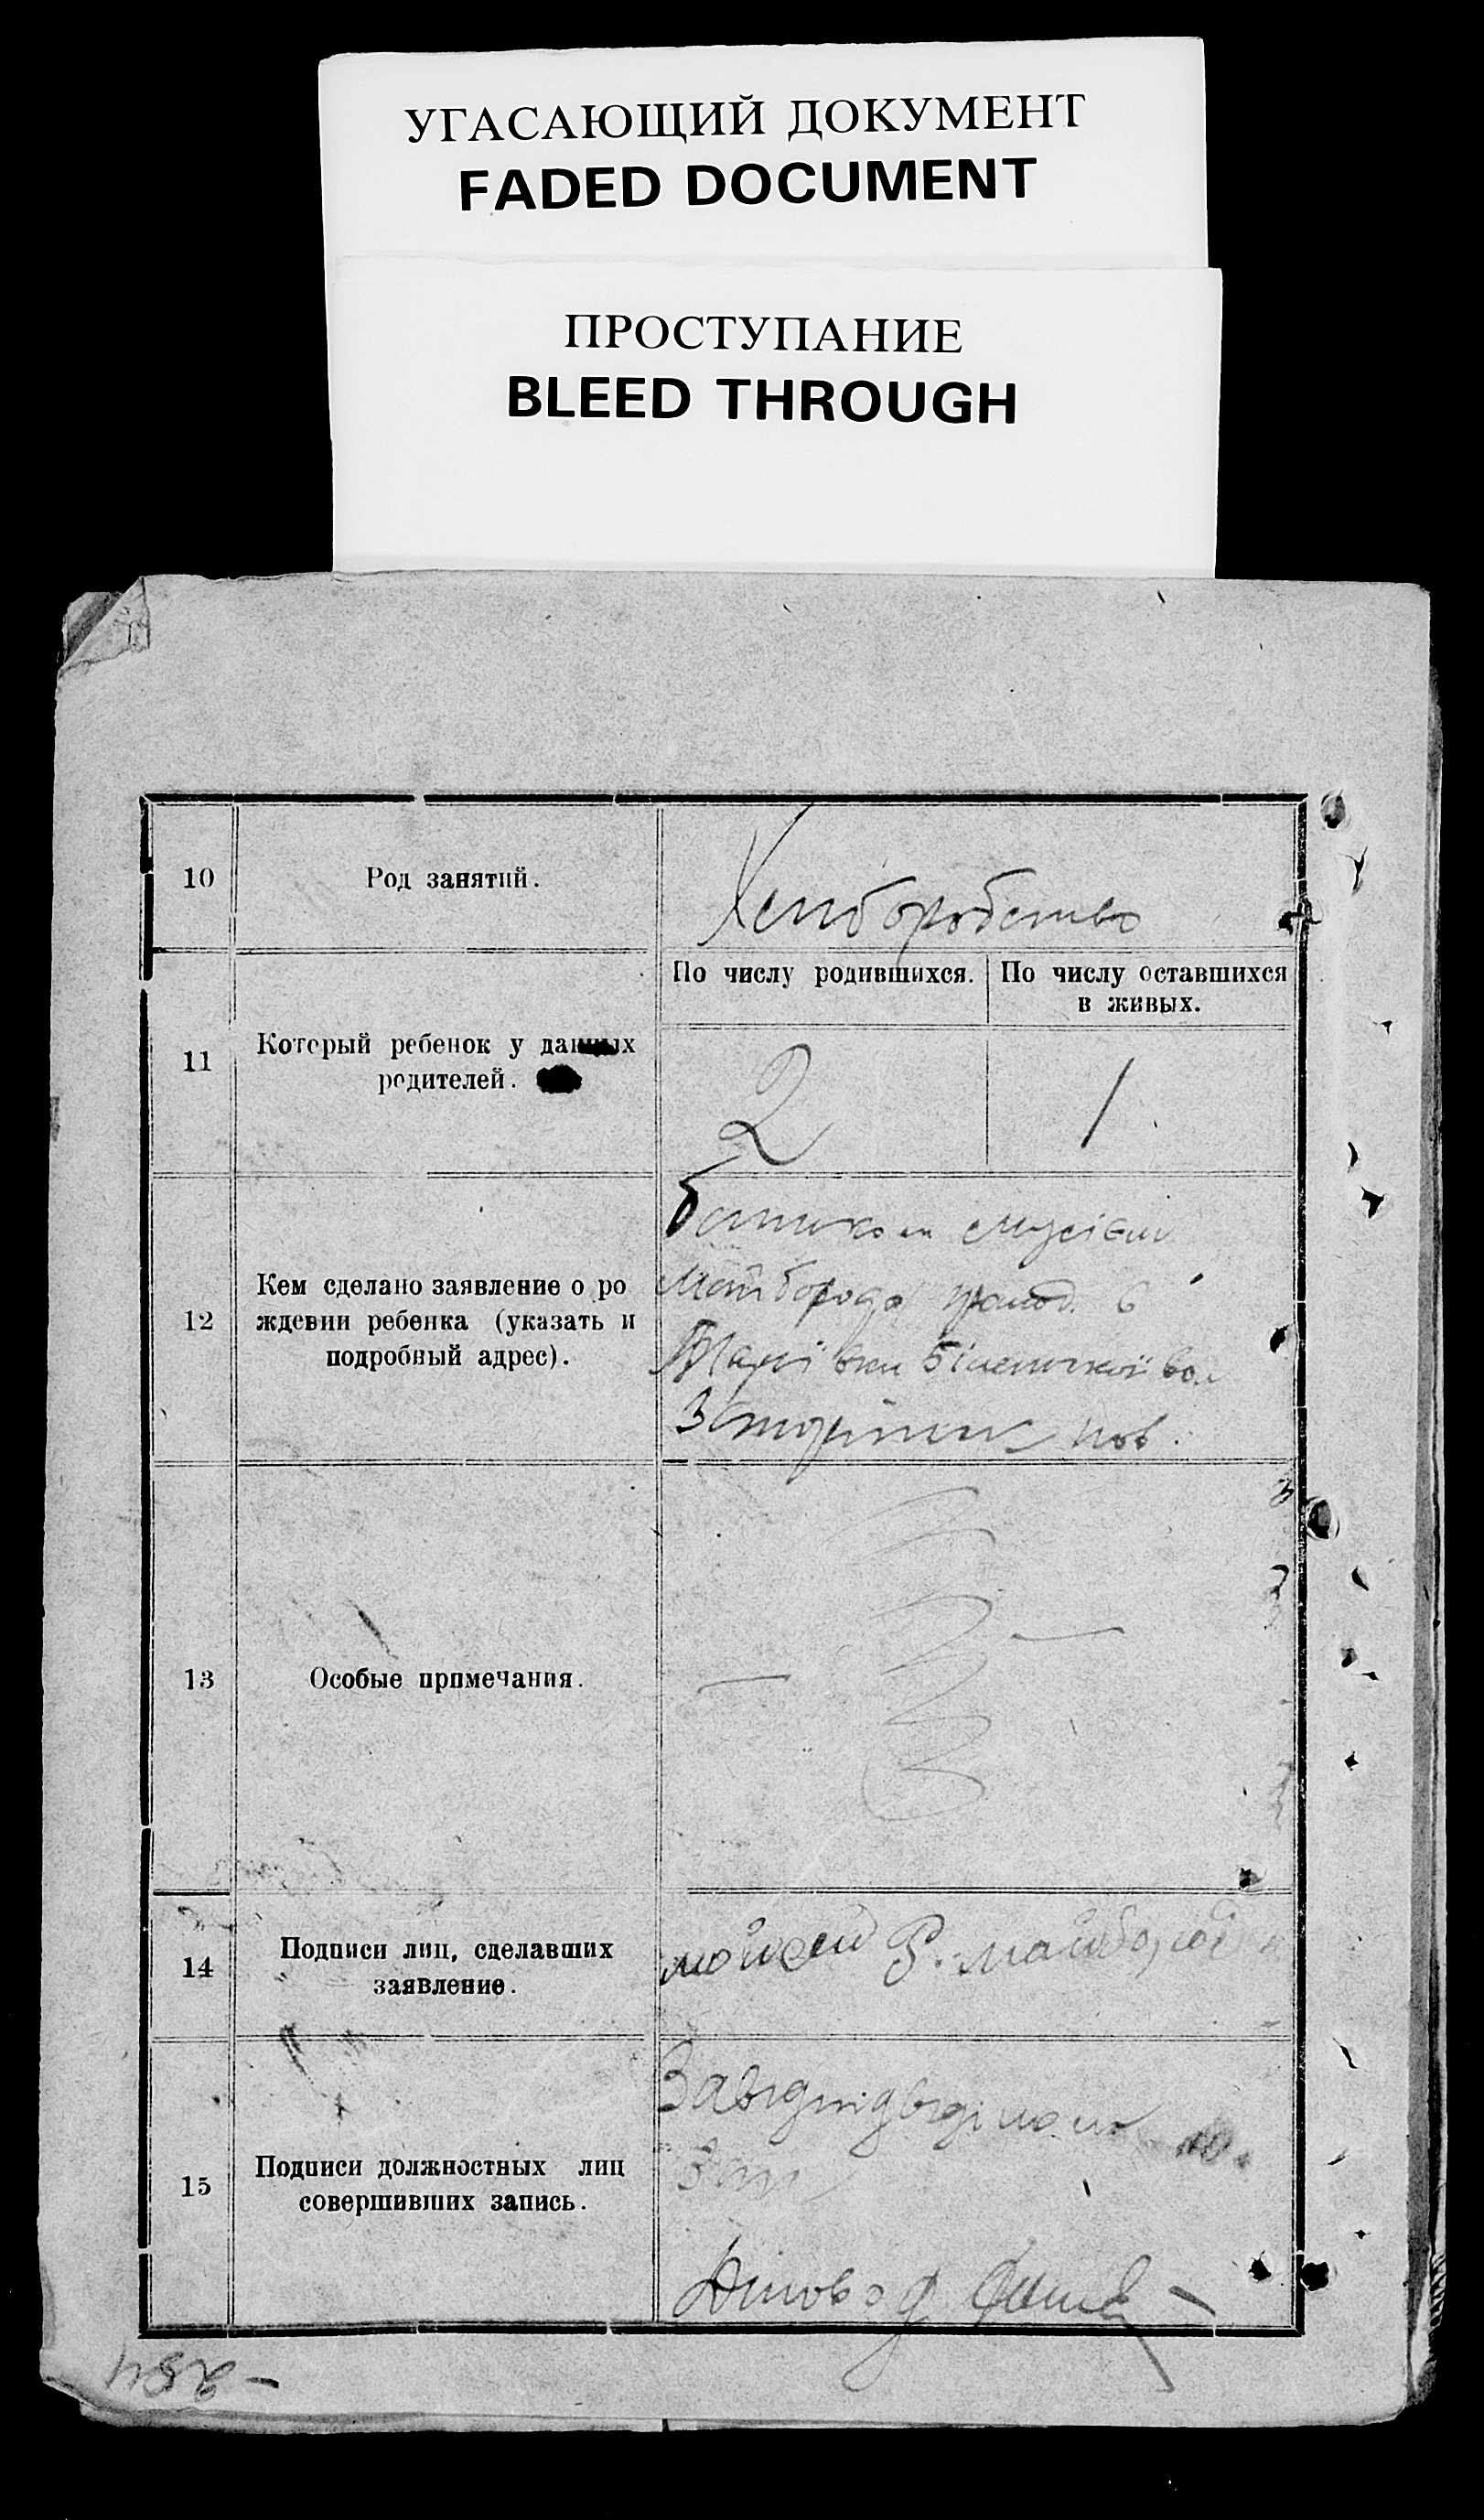 УГАСАЮЩИЙ ДОКУМЕНТ
FADED DOCUMENT
ПРОСТУПАНИЕ
BLEED THROUGH
10
Род занятий.
Хлиборобство
11
Который ребенок у данных
родителей.
По числу родившихся.
По числу оставшихся
в живых.
2
1
12
Кем сделано заявление о ро
ждении ребенка (указать и
подробный адрес).
Батьком Мусієм
Майборода громад. с
Біленької вол
пов.
13
Особые примечания.
14
Подписи лиц, сделавших
заявление.
Мойсей Майборода
15
Подписи должностных лиц
совершивших запись.
Діловод
284